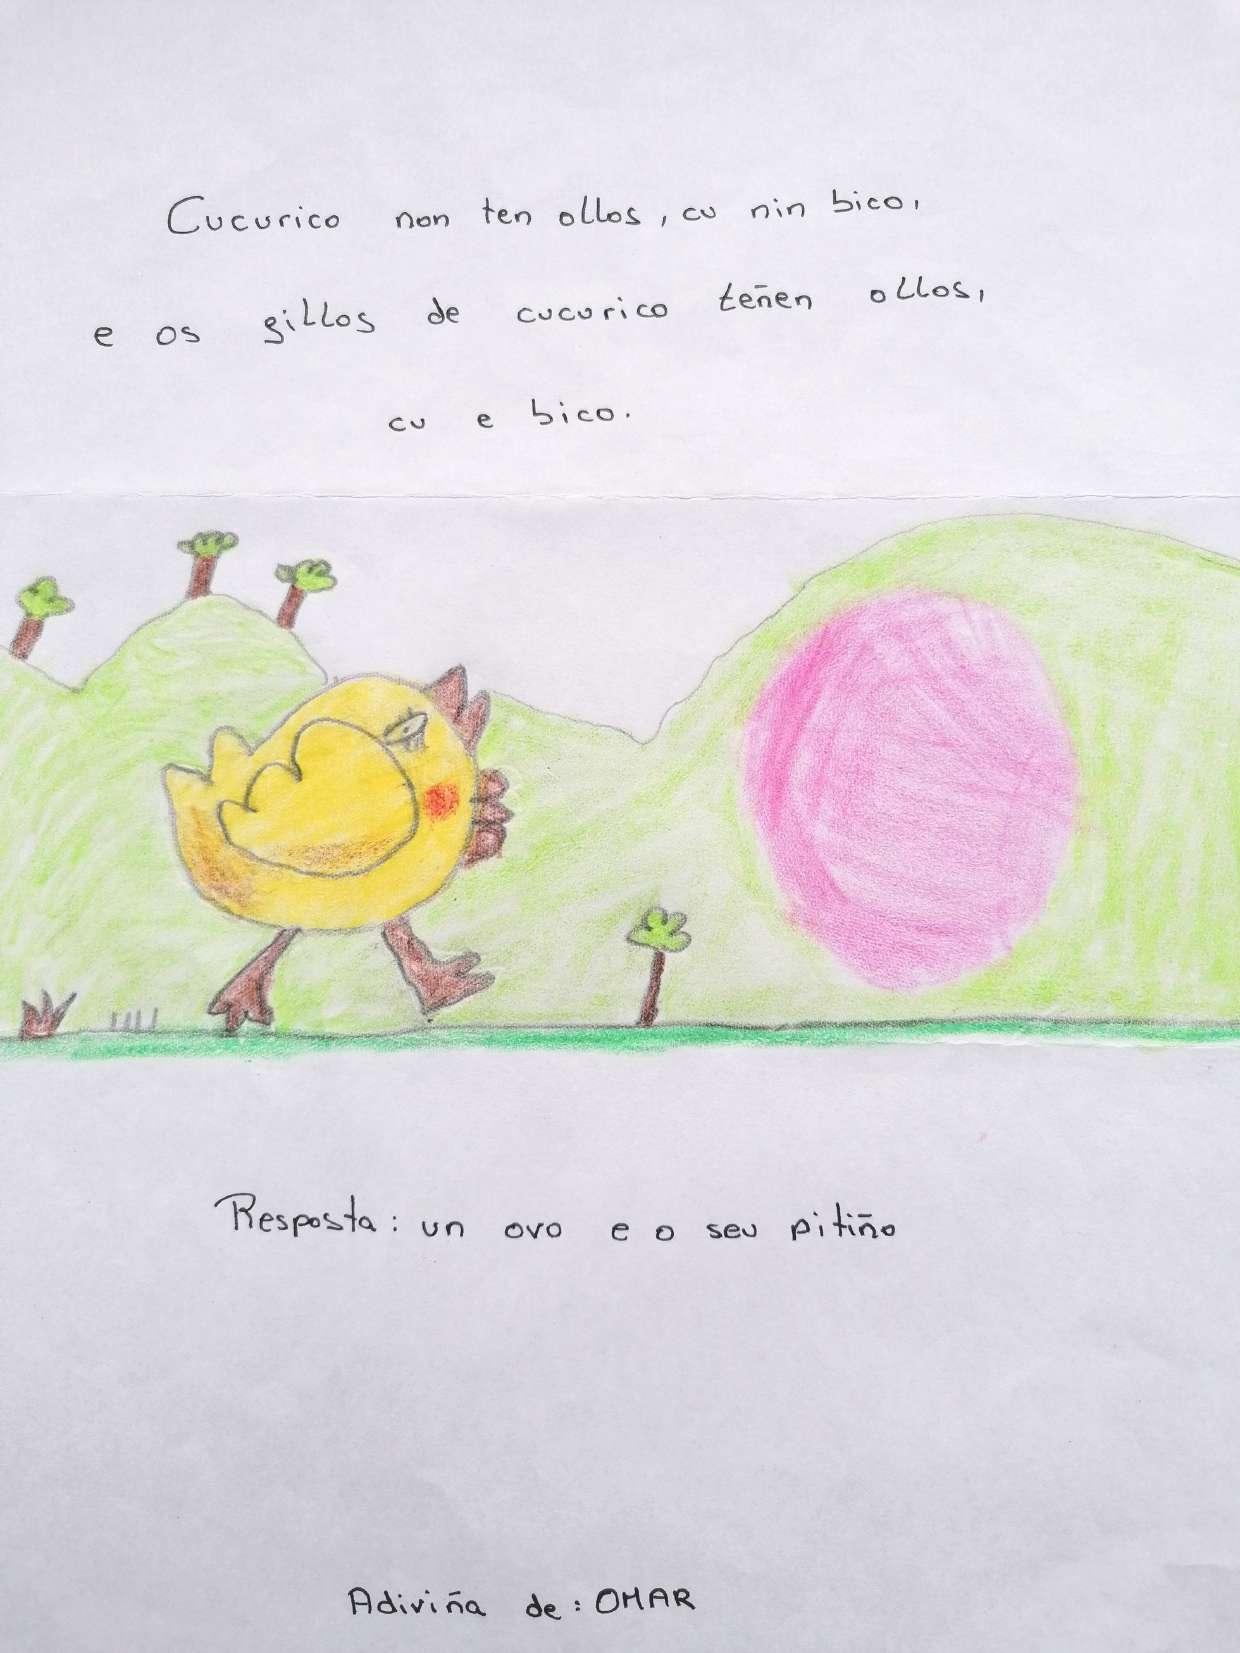 Cucurico non ten ollos, cu nin bico,
e os gillos de cucurico teñen ollos,
cu e bico.
Resposta: un ovo e o seu pitiño
Adiviña de: OMAR